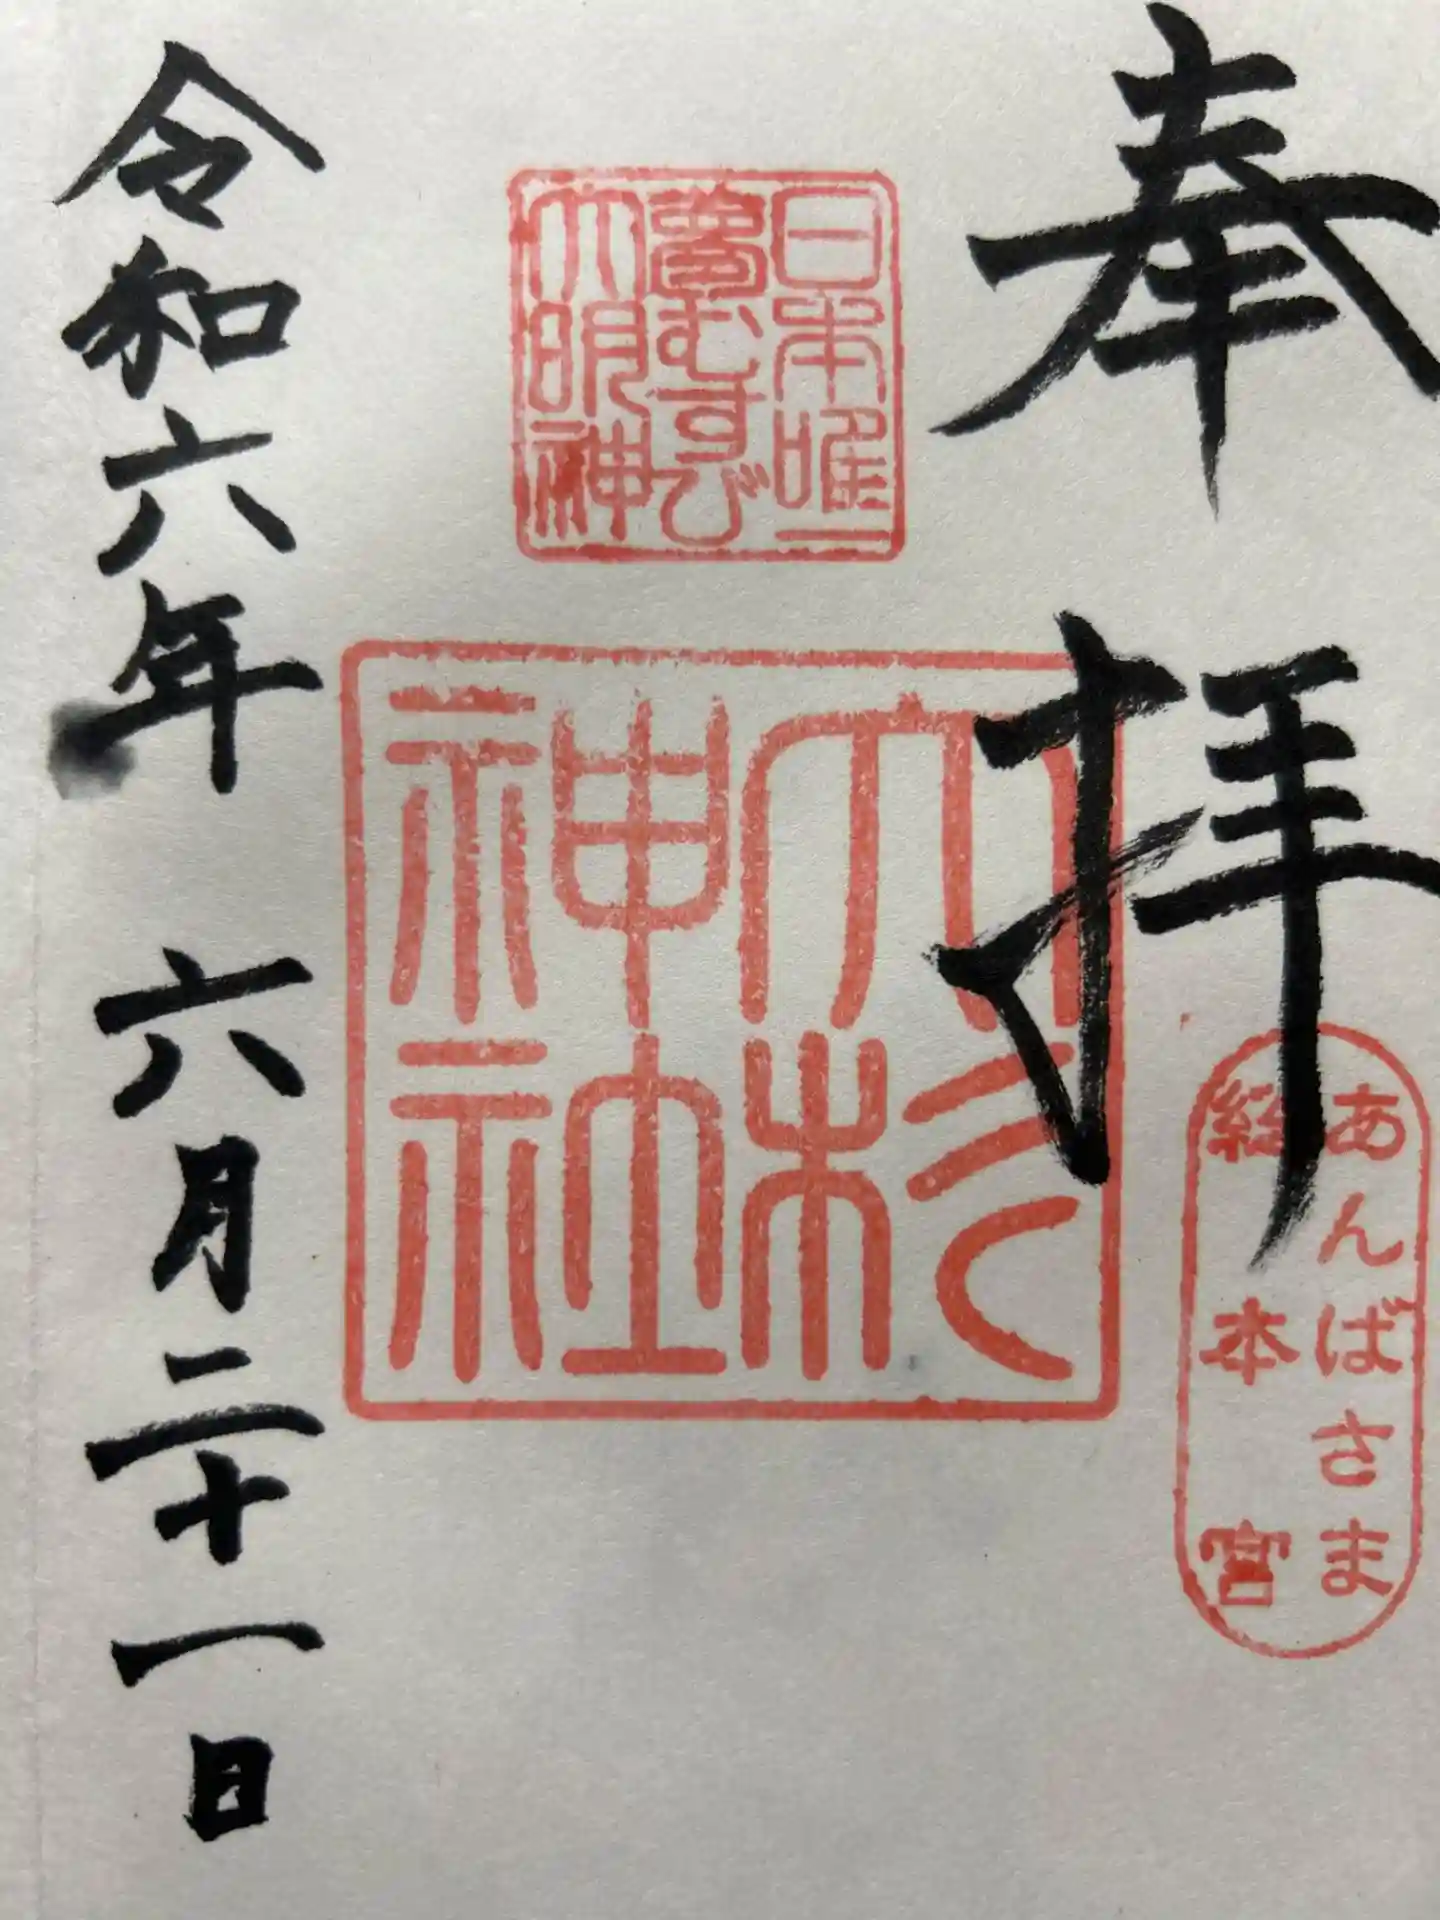 奉拝
あんばさま
総本宮
日本唯一
夢むすび
大明神
大杉
神社
令和六年 六月二十一日